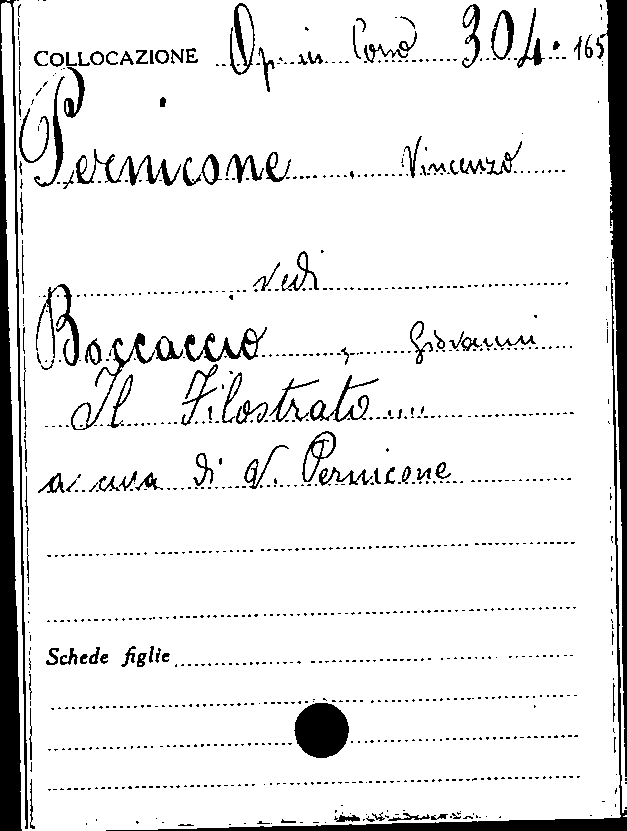 COLLOCAZIONE Op. in Corso 304.165
Pernicone, Vincenzo
vedi
Boccaccio, Giovanni
Il Filostrato....
a cura di V. Pernicone
Schede figlie